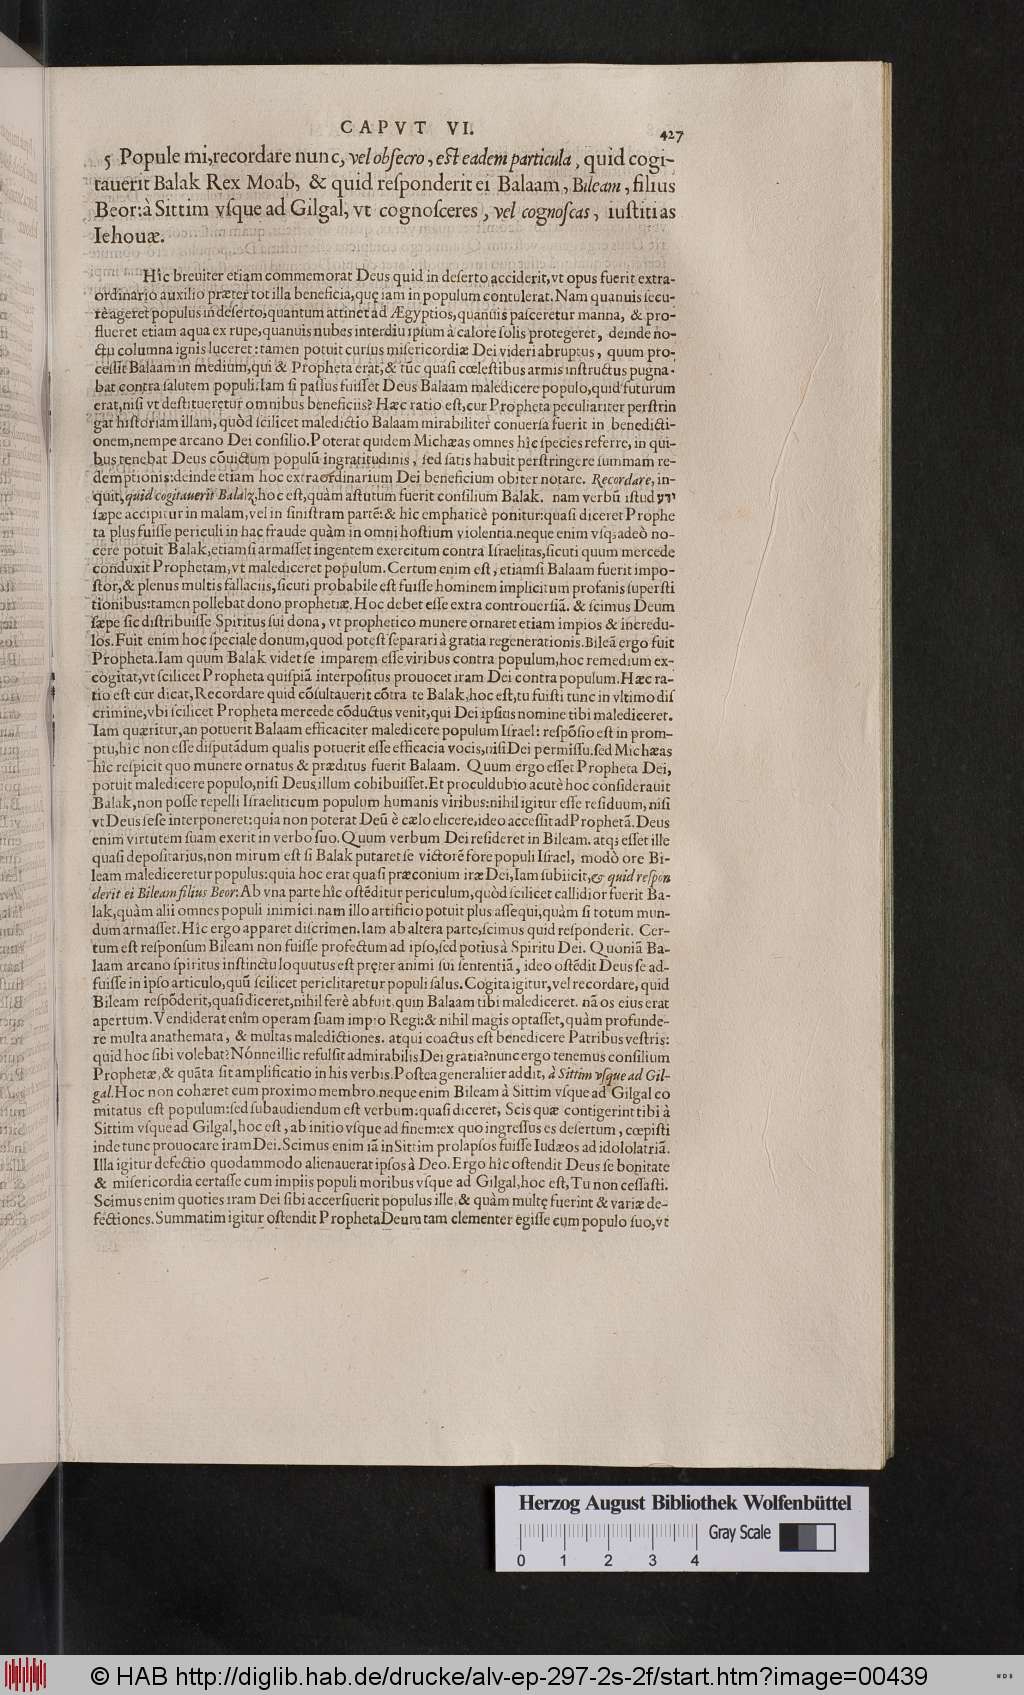 CAPVT VI.
427
5 Popule mi, recordare nunc, vel obſecro, eſt eadem particula, quid cogi-
tauerit Balak Rex Moab, & quid reſponderit ei Balaam, Bileam, filius
Beor: à Sittim vſque ad Gilgal, vt cognoſceres, vel cognoſcas, iuſtitias
Iehouæ.
Hîc breuiter etiam commemorat Deus quid in deſerto acciderit, vt opus fuerit extra-
ordinario auxilio præter tot illa beneficia, quę iam in populum contulerat. Nam quanuis ſecu-
rè ageret populus in deſerto, quantum attinet ad Ægyptios, quanuis paſceretur manna, & pro-
flueret etiam aqua ex rupe, quanuis nubes interdiu ipſum à calore ſolis protegeret, deinde no-
ctu columna ignis luceret: tamen potuit curſus miſericordiæ Dei videri abruptus, quum pro-
ceſſit Balaam in medium, qui & Propheta erat, & tũc quaſi cœleſtibus armis inſtructus pugna-
bat contra ſalutem populi. Iam ſi paſſus fuiſſet Deus Balaam maledicere populo, quid futurum
erat, niſi vt deſtitueretur omnibus beneficiis? Hæc ratio eſt, cur Propheta peculiariter perſtrin
gat hiſtoriam illam, quòd ſcilicet maledictio Balaam mirabiliter conuerſa fuerit in benedicti-
onem, nempe arcano Dei conſilio. Poterat quidem Michæas omnes hîc ſpecies referre, in qui-
bus tenebat Deus cõuictum populũ ingratitudinis, ſed ſatis habuit perſtringere ſummam re-
demptionis: deinde etiam hoc extraordinarium Dei beneficium obiter notare. Recordare, in-
quit, quid cogitauerit Balak, hoc eſt, quàm aſtutum fuerit conſilium Balak. nam verbũ iſtud יעץ
ſæpe accipitur in malam, vel in ſiniſtram partẽ: & hîc emphaticè ponitur: quaſi diceret Prophe
ta plus fuiſſe periculi in hac fraude quàm in omni hoſtium violentia. neque enim vſq; adeò no-
cere potuit Balak, etiamſi armaſſet ingentem exercitum contra Iſraelitas, ſicuti quum mercede
conduxit Prophetam, vt malediceret populum. Certum enim eſt, etiamſi Balaam fuerit impo-
ſtor, & plenus multis fallaciis, ſicuti probabile eſt fuiſſe hominem implicitum profanis ſuperſti
tionibus: tamen pollebat dono prophetiæ. Hoc debet eſſe extra controuerſiã. & ſcimus Deum
ſæpe ſic diſtribuiſſe Spiritus ſui dona, vt prophetico munere ornaret etiam impios & incredu-
los. Fuit enim hoc ſpeciale donum, quod poteſt ſeparari à gratia regenerationis. Bileã ergo fuit
Propheta. Iam quum Balak videt ſe imparem eſſe viribus contra populum, hoc remedium ex-
cogitat, vt ſcilicet Propheta quiſpiã interpoſitus prouocet iram Dei contra populum. Hæc ra-
tio eſt cur dicat, Recordare quid cõſultauerit cõtra te Balak, hoc eſt, tu fuiſti tunc in vltimo diſ
crimine, vbi ſcilicet Propheta mercede cõductus venit, qui Dei ipſius nomine tibi malediceret.
Iam quæritur, an potuerit Balaam efficaciter maledicere populum Iſrael: reſpõſio eſt in prom-
ptu, hîc non eſſe diſputãdum qualis potuerit eſſe efficacia vocis, niſi Dei permiſſu. ſed Michæas
hîc reſpicit quo munere ornatus & præditus fuerit Balaam. Quum ergo eſſet Propheta Dei,
potuit maledicere populo, niſi Deus illum cohibuiſſet. Et proculdubio acutè hoc conſiderauit
Balak, non poſſe repelli Iſraeliticum populum humanis viribus: nihil igitur eſſe reſiduum, niſi
vt Deus ſeſe interponeret: quia non poterat Deũ è cælo elicere, ideo acceſſit ad Prophetã. Deus
enim virtutem ſuam exerit in verbo ſuo. Quum verbum Dei reſideret in Bileam. atq; eſſet ille
quaſi depoſitarius, non mirum eſt ſi Balak putaret ſe victorẽ fore populi Iſrael, modò ore Bi-
leam malediceretur populus: quia hoc erat quaſi præconium iræ Dei, Iam ſubiicit, & quid reſpon
derit ei Bileam filius Beor. Ab vna parte hîc oſtẽditur periculum, quòd ſcilicet callidior fuerit Ba-
lak, quàm alii omnes populi inimici. nam illo artificio potuit plus aſſequi, quàm ſi totum mun-
dum armaſſet. Hîc ergo apparet diſcrimen. Iam ab altera parte, ſcimus quid reſponderit. Cer-
tum eſt reſponſum Bileam non fuiſſe profectum ad ipſo, ſed potius à Spiritu Dei. Quoniã Ba-
laam arcano ſpiritus inſtinctu loquutus eſt pręter animi ſui ſententiã, ideo oſtẽdit Deus ſe ad-
fuiſſe in ipſo articulo, quũ ſcilicet periclitaretur populi ſalus. Cogita igitur, vel recordare, quid
Bileam reſpõderit, quaſi diceret, nihil ferè abfuit quin Balaam tibi malediceret. nã os eius erat
apertum. Vendiderat enim operam ſuam impio Regi: & nihil magis optaſſet, quàm profunde-
re multa anathemata, & multas maledictiones. atqui coactus eſt benedicere Patribus veſtris:
quid hoc ſibi volebat? Nónne illic refulſit admirabilis Dei gratia? nunc ergo tenemus conſilium
Prophetæ, & quãta ſit amplificatio in his verbis. Poſtea generaliter addit, à Sittim vſque ad Gil-
gal. Hoc non cohæret cum proximo membro. neque enim Bileam à Sittim vſque ad Gilgal co
mitatus eſt populum: ſed ſubaudiendum eſt verbum: quaſi diceret, Scis quæ contigerint tibi à
Sittim vſque ad Gilgal, hoc eſt, ab initio vſque ad finem: ex quo ingreſſus es deſertum, cœpiſti
inde tunc prouocare iram Dei. Scimus enim iã in Sittim prolapſos fuiſſe Iudæos ad idololatriã.
Illa igitur defectio quodammodo alienauerat ipſos à Deo. Ergo hîc oſtendit Deus ſe bonitate
& miſericordia certaſſe cum impiis populi moribus vſque ad Gilgal, hoc eſt, Tu non ceſſaſti.
Scimus enim quoties iram Dei ſibi accerſiuerit populus ille. & quàm multę fuerint & variæ de-
fectiones. Summatim igitur oſtendit Propheta Deum tam clementer egiſſe cum populo ſuo, vt
Herzog August Bibliothek Wolfenbüttel
Gray Scale
0 1 2 3 4
© HAB http://diglib.hab.de/drucke/alv-ep-297-2s-2f/start.htm?image=00439
WDB